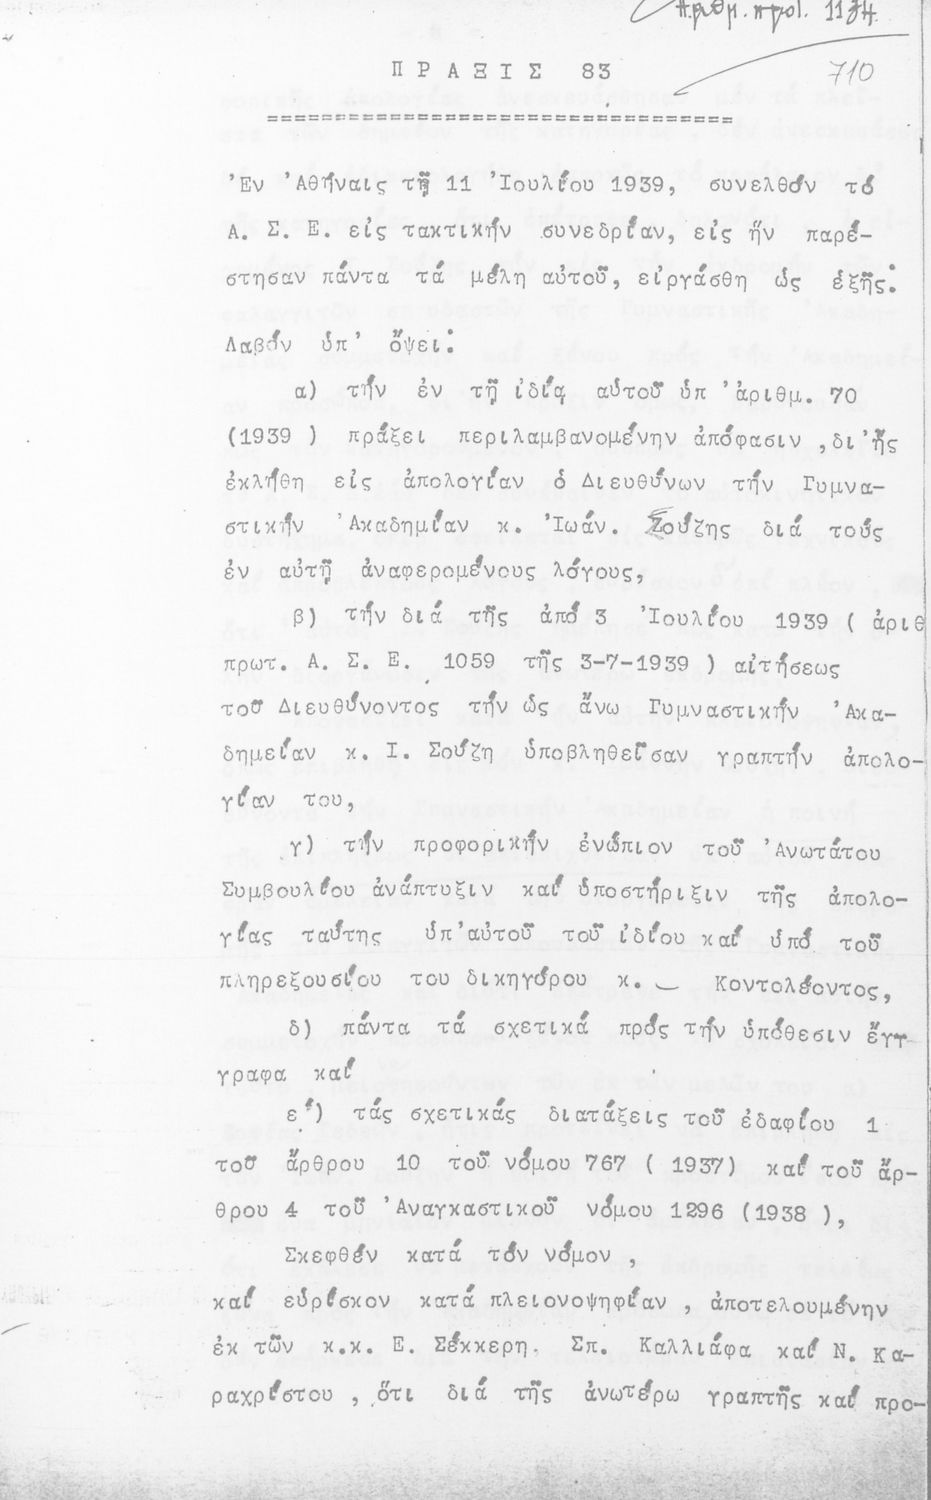 Ἀριθμ. πρωτ. 1134
710
ΠΡΑΞΙΣ 83
===================================
Ἐν Ἀθήναις τῇ 11 Ἰουλίου 1939, συνελθόν τό
Α. Σ. Ε. εἰς τακτικήν συνεδρίαν, εἰς ἥν παρέ-
στησαν πάντα τά μέλη αὐτοῦ, εἰργάσθη ὡς ἑξῆς:
Λαβόν ὑπ' ὄψει:
α) τήν ἐν τῇ ἰδίᾳ αὐτοῦ ὑπ' ἀριθμ. 70
(1939 ) πράξει περιλαμβανομένην ἀπόφασιν ,δι'ἧς
ἐκλήθη εἰς ἀπολογίαν ὁ Διευθύνων τήν Γυμνα-
στικήν Ἀκαδημίαν κ. Ἰωάν. Σούζης διά τούς
ἐν αὐτῇ ἀναφερομένους λόγους,
β) τήν διά τῆς ἀπό 3 Ἰουλίου 1939 ( ἀριθ
πρωτ. Α. Σ. Ε. 1059 τῆς 3-7-1939 ) αἰτήσεως
τοῦ Διευθύνοντος τήν ὡς ἄνω Γυμναστικήν Ἀκα-
δημείαν κ. Ι. Σούζη ὑποβληθεῖσαν γραπτήν ἀπολο-
γίαν του,
γ) τήν προφορικήν ἐνώπιον τοῦ Ἀνωτάτου
Συμβουλίου ἀνάπτυξιν καί ὑποστήριξιν τῆς ἀπολο-
γίας ταύτης ὑπ'αὐτοῦ τοῦ ἰδίου καί ὑπό τοῦ
πληρεξουσίου του δικηγόρου κ. — Κοντολέοντος,
δ) πάντα τά σχετικά πρός τήν ὑπόθεσιν ἔγγ
γραφα καί
ε') τάς σχετικάς διατάξεις τοῦ ἐδαφίου 1
τοῦ ἄρθρου 10 τοῦ νόμου 767 ( 1937) καί τοῦ ἄρ-
θρου 4 τοῦ Ἀναγκαστικοῦ νόμου 1296 (1938 ),
Σκεφθέν κατά τόν νόμον ,
καί εὑρίσκον κατά πλειονοψηφίαν , ἀποτελουμένην
ἐκ τῶν κ.κ. Ε. Σέκκερη. Σπ. Καλλιάφα καί Ν. Κα-
ραχρίστου , ὅτι διά τῆς ἀνωτέρω γραπτῆς καί προ-